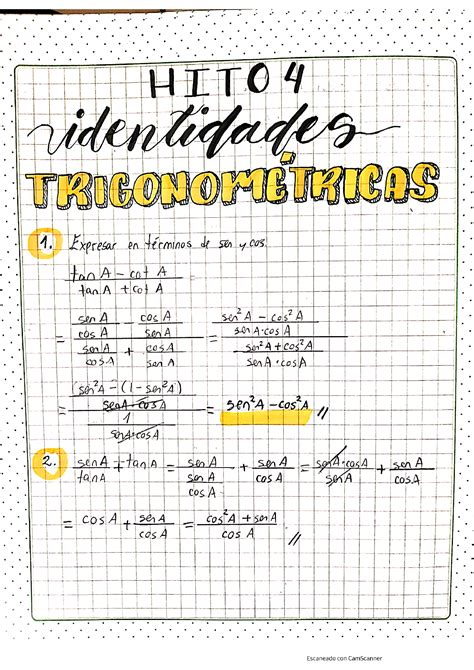 HITO 4
identidades
TRIGONOMÉTRICAS
1. Expresar en términos de sen y cos.
(tan A − cot A) / (tan A + cot A) =
= (sen A / cos A − cos A / sen A) / (sen A / cos A + cos A / sen A) = ((sen²A − cos²A) / (sen A·cos A)) / ((sen²A + cos²A) / (sen A·cos A))
= ((sen²A − (1 − sen²A)) / (sen A·cos A)) / (1 / (sen A·cos A)) = sen²A − cos²A //
2. sen A / tan A + tan A = sen A / (sen A / cos A) + sen A / cos A = sen A·cos A / sen A + sen A / cos A
= cos A + sen A / cos A = (cos²A + sen A) / cos A //
Escaneado con CamScanner